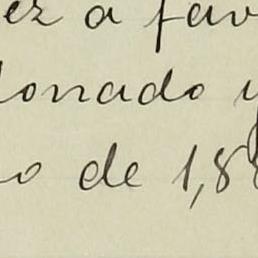 ez a fav
onado y
o de 1,88